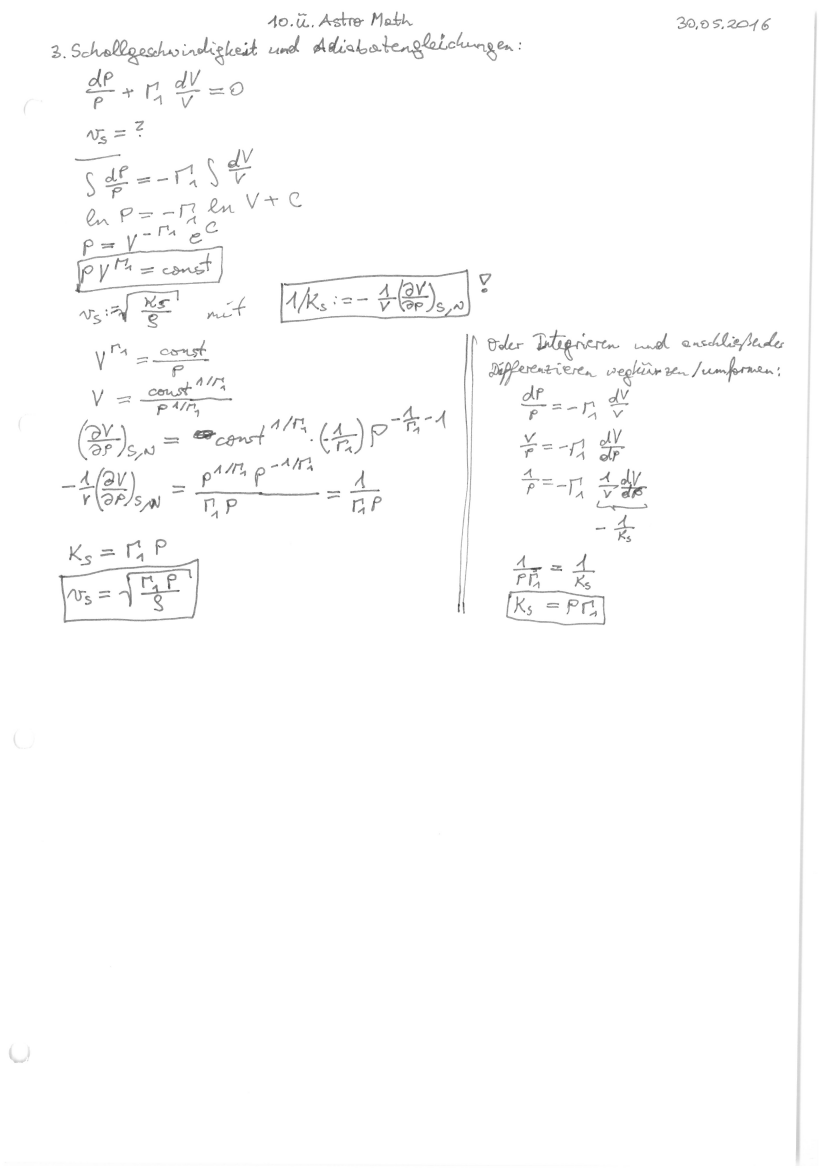 10. Ü. Astro Math
30.05.2016
3. Schallgeschwindigkeit und Adiabatengleichungen:
dP/P + Γ₁ dV/V = 0
v_S = ?
∫ dP/P = -Γ₁ ∫ dV/V
ln P = -Γ₁ ln V + C
P = V^(-Γ₁) e^C
P V^Γ₁ = const
v_S := √(K_S/ρ) mit 1/K_S := - 1/V (∂V/∂P)_S,N !
V^Γ₁ = const/P
V = const^(1/Γ₁) / P^(1/Γ₁)
(∂V/∂P)_S,N = const^(1/Γ₁) · (-1/Γ₁) P^(-1/Γ₁ - 1)
-1/V (∂V/∂P)_S,N = P^(1/Γ₁) P^(-1/Γ₁) / (Γ₁ P) = 1/(Γ₁ P)
K_S = Γ₁ P
v_S = √(Γ₁ P/ρ)
Oder Integrieren und anschließendes
Differenzieren wegkürzen/umformen:
dP/P = -Γ₁ dV/V
V/P = -Γ₁ dV/dP
1/P = -Γ₁ 1/V dV/dP
- 1/K_S
1/(PΓ₁) = 1/K_S
K_S = PΓ₁